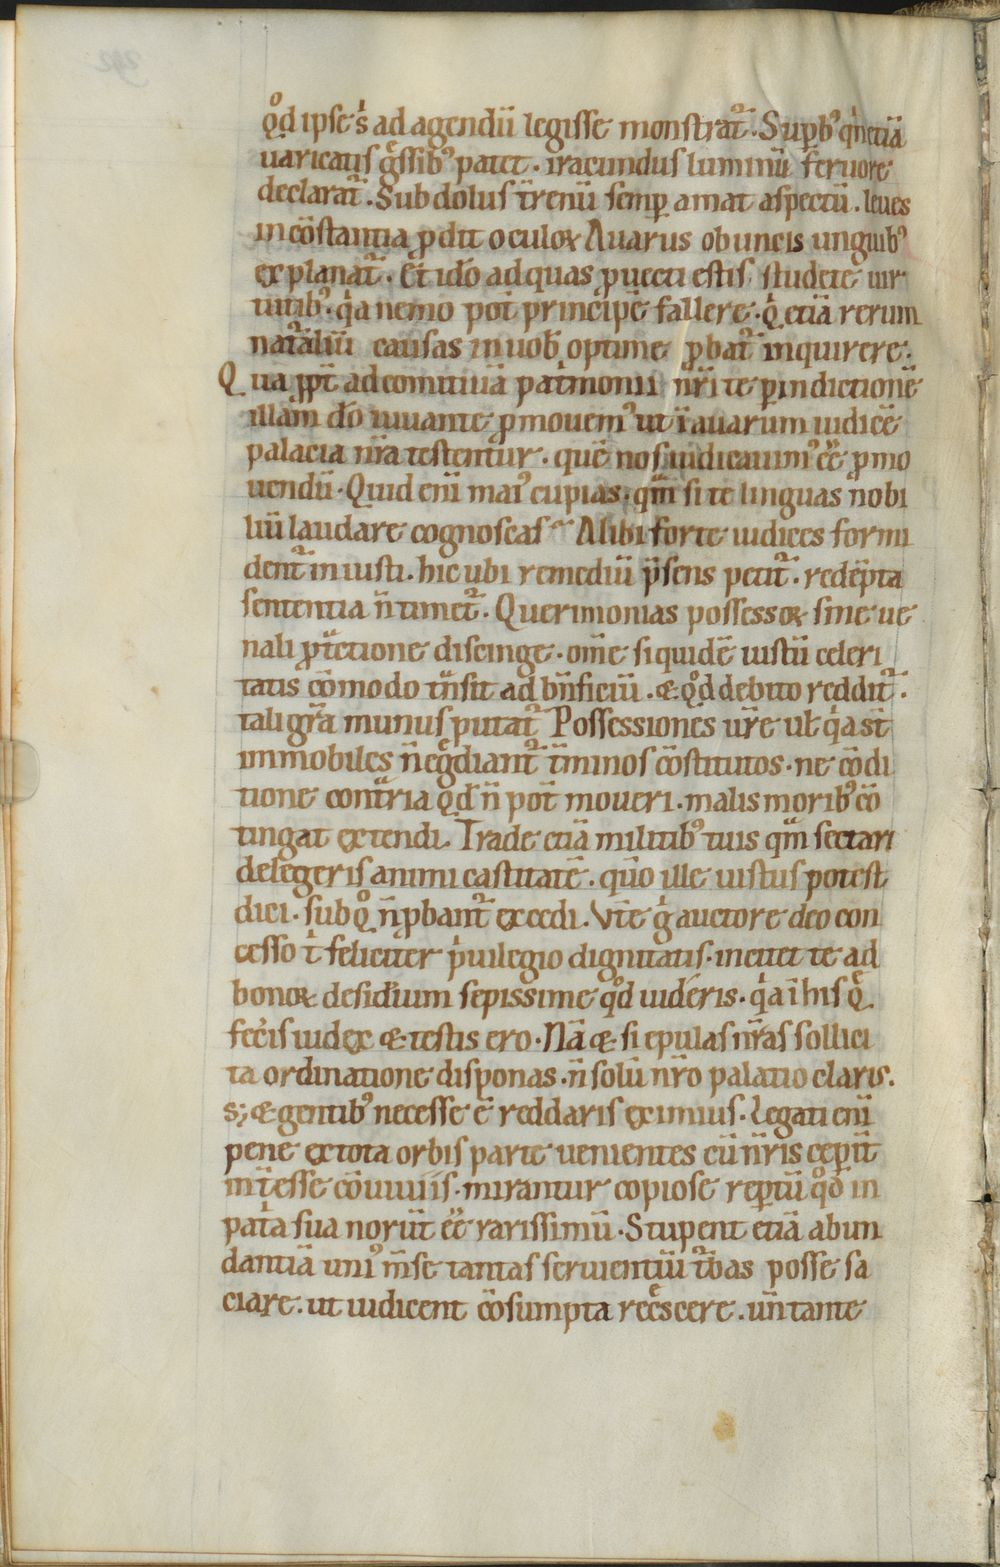 qͦd ipse sͥ ad agendū legisse monstrat᷑. Supbꝰ qͥn etiā
uaricatis gͣssibꝰ patet. iracundus luminū feruore
declarat᷑. Subdolus t̄renū semꝑ amat aspectū. leues
incōstantia ꝓdit oculoꝝ Auarus obuncis unguibꝰ
explanat᷑. Et ido̅ ad quas ꝓuecti estis studete uir
tutibꝰ. qͥa nemo pot̄ principē fallere. qͥ etiā rerum
nat᷑aliū causas in uob̄ optime ꝓbat᷑ inquirere.
Qua ꝓpt̄ ad comitiuā patͥmonii nr̄i te ꝑ indictionē
illam do̅ iuuante ꝓmouemꝰ ut ī auarum iudicē
palacia nr̄a testentur. quē nos iudicauimꝰ ēē ꝓmo
uendū. Quid eni̅ maiꝰ cupias. qͣm si te linguas nobi
liū laudare cognoscas Alibi forte iudices formi
dent᷑ iniusti. hic ubi remediū p̄sens petit᷑. redēpta
sententia n̄ timet᷑. Querimonias possessoꝝ sine ue
nali ꝓtͣctione discinge. om̄e siquidē iustū celeri
tatis cōmodo tn̄sit ad bn̄ficiū. & qͦd debito reddit᷑.
tali gr̄a munus putat᷑ Possessiones ur̄e ul̄ qͥa st̄
immobiles n̄ egͬdiant᷑ t̄minos cōstitutos. ne cōdi
tione contͣria qd̄ n̄ pot̄ moueri. malis moribꝰ cō
tingat extendi. Trade etiā militibꝰ tuis qͣm sectari
delegeris animi castitatē. quo̅ ille iustus potest
dici. sub qͦ n̄ ꝓbant᷑ excedi. Vt̄e gͥ auctore deo con
cesso t̄ feliciter pͥuilegio dignitatis. incitet te ad
bonoꝝ desiderium sepissime qͦd uideris. qͥa ī his qͤ
fec̄is iudex & testis ero. Nā & si epulas nr̄as sollici
ta ordinatione disponas. n̄ solū nr̄o palatio claris.
s; & gentibꝰ necesse ē reddaris eximius. Legati eni̅
pene ex tota orbis parte uenientes cū nr̄is ceꝑit̄
int̄esse cōuiuiis. mirantur copiose reꝑtū qͦd in
patͥa sua norūt ēē rarissimū. Stupent etiā abun
dantiā uniꝰ m̄se tantas seruientiū t᷑bas posse sa
ciare. ut iudicent cōsumpta recͤscere. un̄ tante